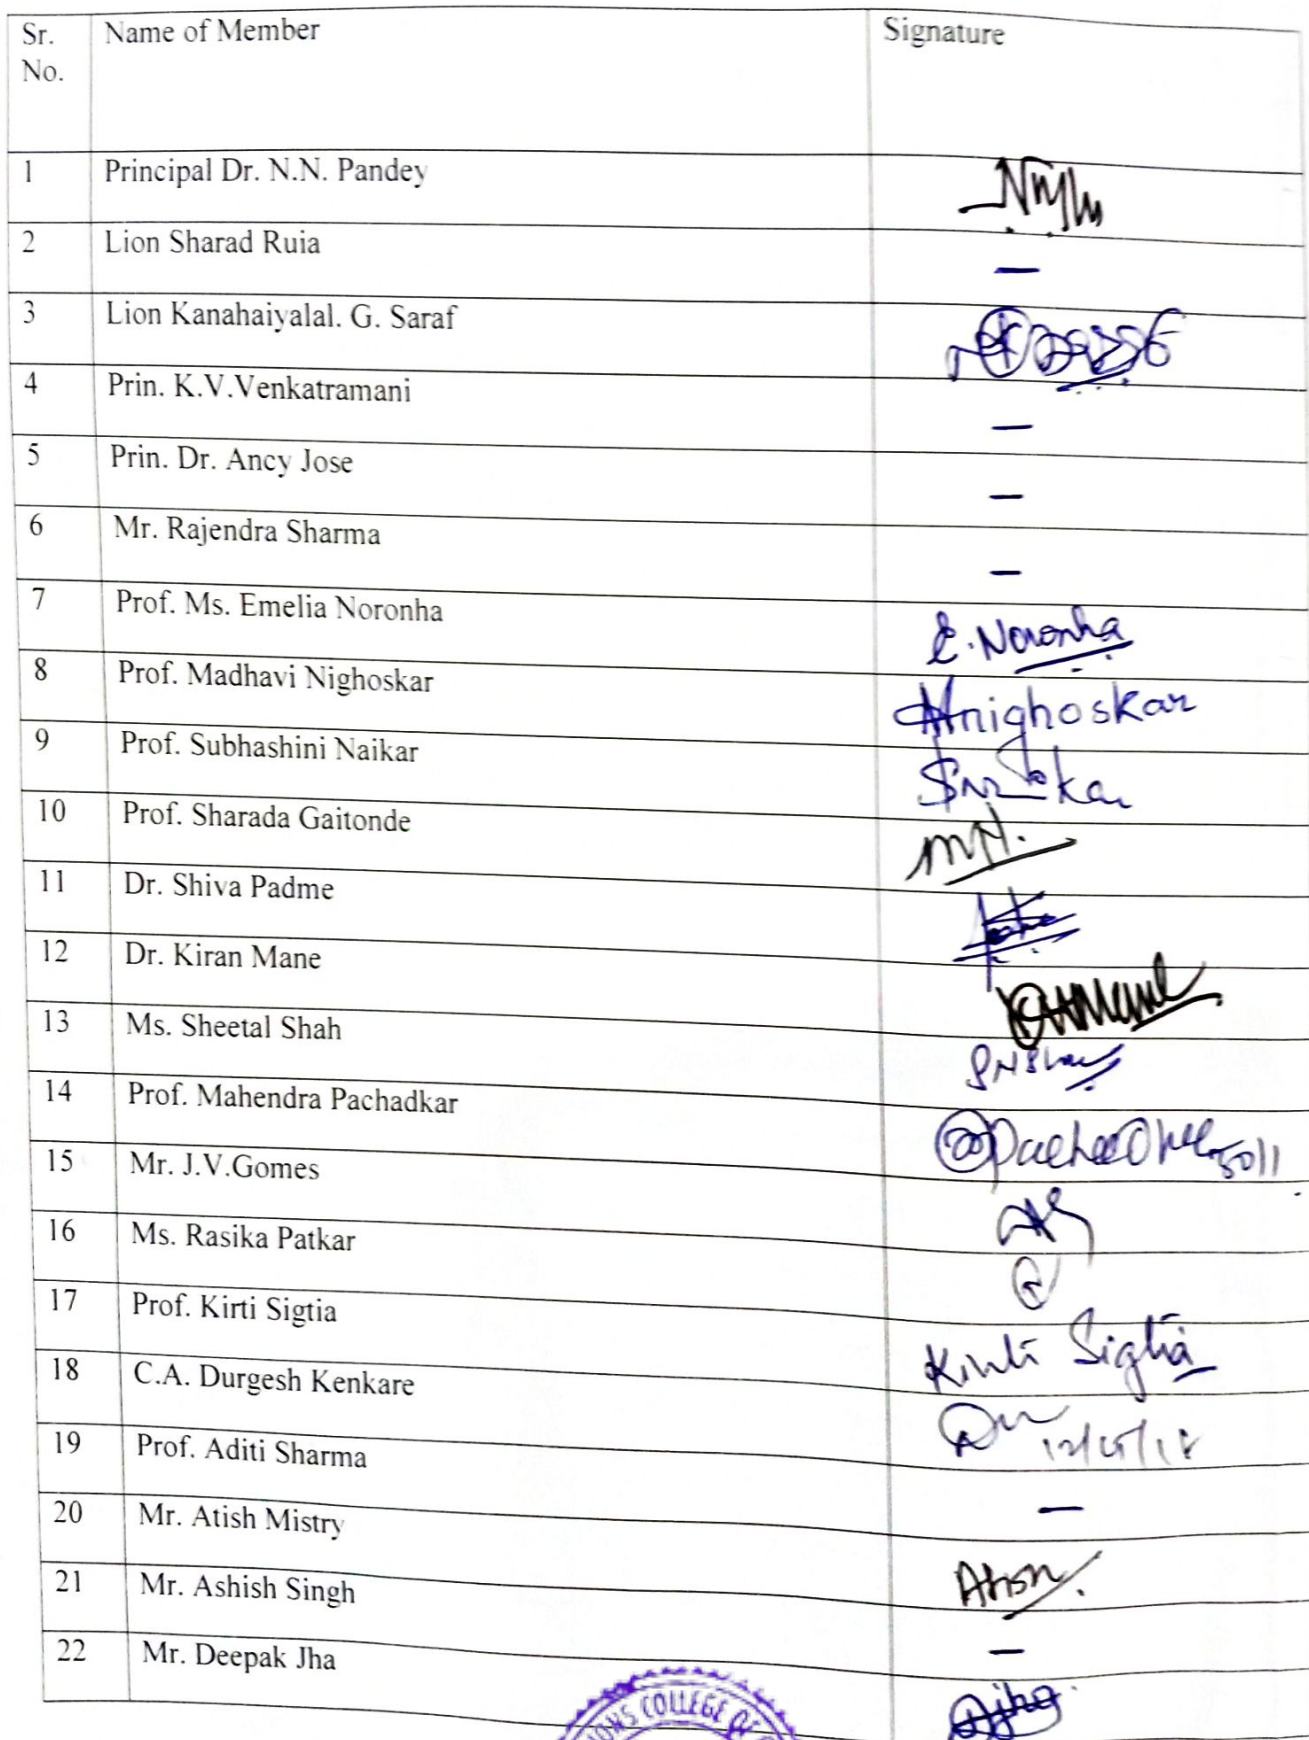 Sr. No. Name of Member Signature
1 Principal Dr. N.N. Pandey
2 Lion Sharad Ruia —
3 Lion Kanahaiyalal. G. Saraf
4 Prin. K.V.Venkatramani —
5 Prin. Dr. Ancy Jose —
6 Mr. Rajendra Sharma —
7 Prof. Ms. Emelia Noronha E. Noronha
8 Prof. Madhavi Nighoskar Nighoskar
9 Prof. Subhashini Naikar
10 Prof. Sharada Gaitonde
11 Dr. Shiva Padme
12 Dr. Kiran Mane
13 Ms. Sheetal Shah
14 Prof. Mahendra Pachadkar
15 Mr. J.V.Gomes
16 Ms. Rasika Patkar
17 Prof. Kirti Sigtia Kirti Sigtia
18 C.A. Durgesh Kenkare
19 Prof. Aditi Sharma —
20 Mr. Atish Mistry Atish
21 Mr. Ashish Singh —
22 Mr. Deepak Jha
COLLEGE OF